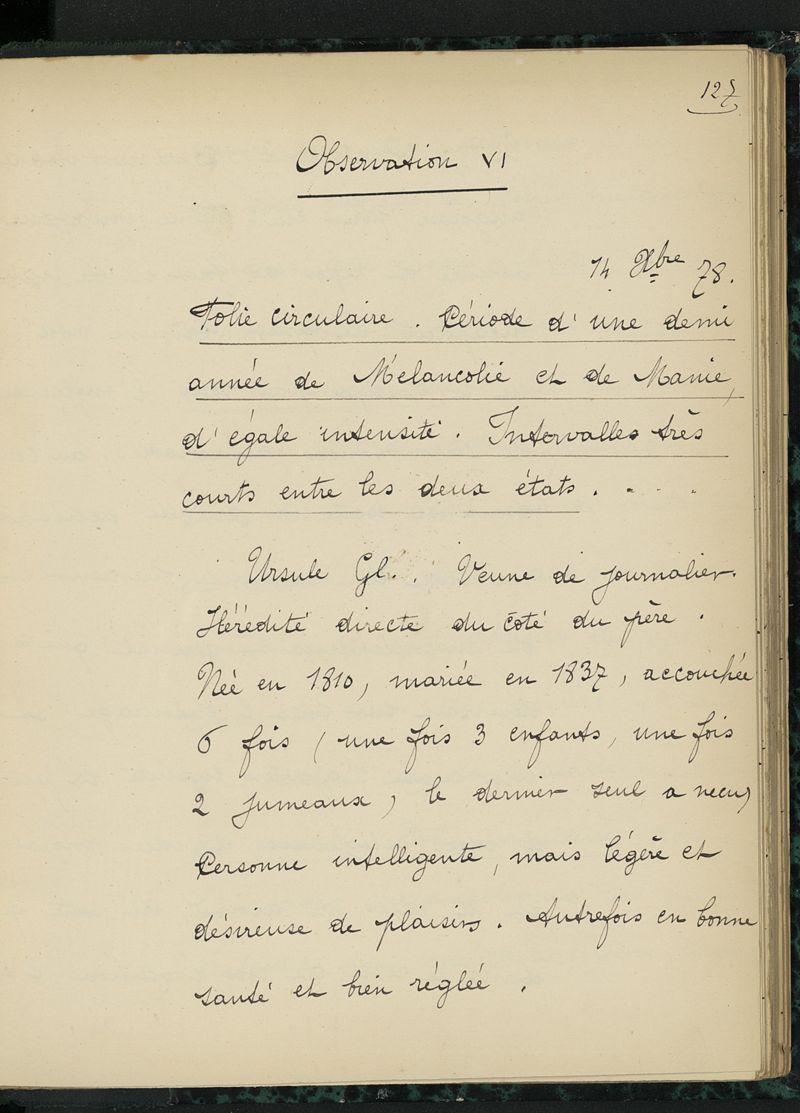 127
Observation VI
14 Xbre 78.
Folie circulaire. Période d'une demi
année de Mélancolie et de Manie,
d'égale intensité. Intervalles très
courts entre les deux états. - . .
Ursule Gl.. Veuve de journalier.
Hérédité directe du côté du père.
Née en 1810, mariée en 1837, accouchée
6 fois (une fois 3 enfants, une fois
2 jumeaux, le dernier seul a vécu)
Personne intelligente, mais légère et
désireuse de plaisirs. Autrefois en bonne
santé et bien réglée.